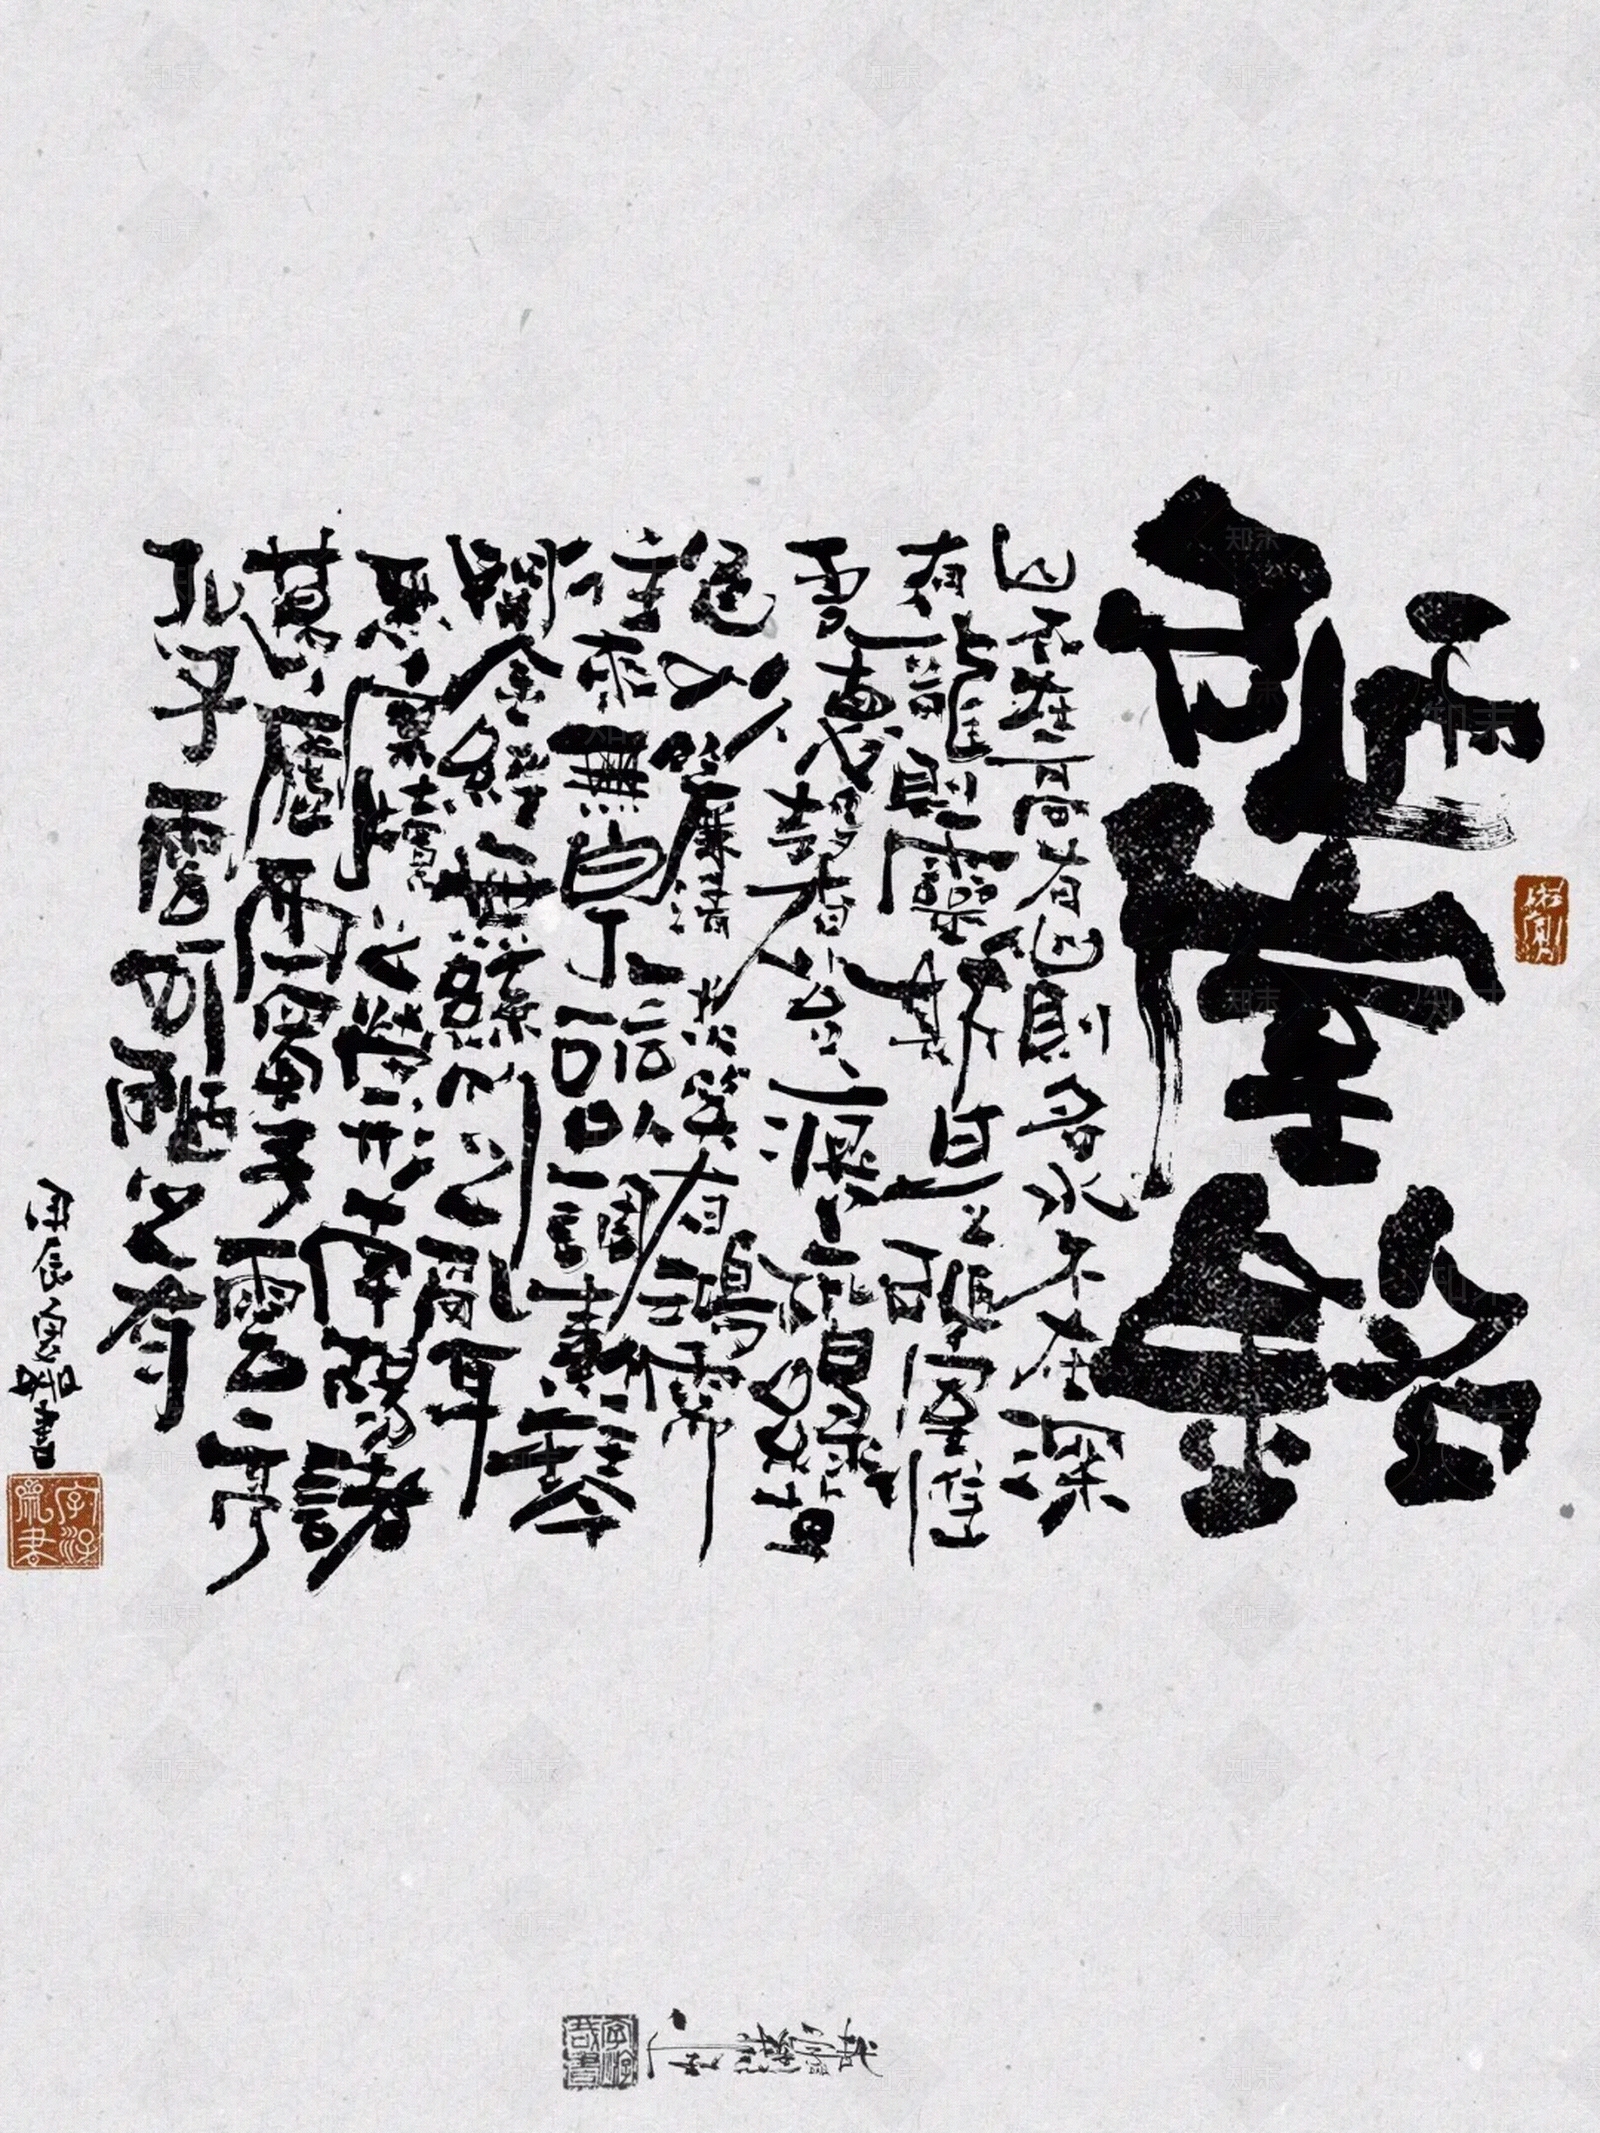 陋室銘
山不在高有仙則名水不在深
有龍則靈斯是陋室惟
吾惪馨苔痕上階綠草
色入簾青談笑有鴻儒
往來無白丁可以調素琴
閱金經無絲竹之亂耳
無案牘之勞形南陽諸
葛廬西蜀子雲亭
孔子雲何陋之有